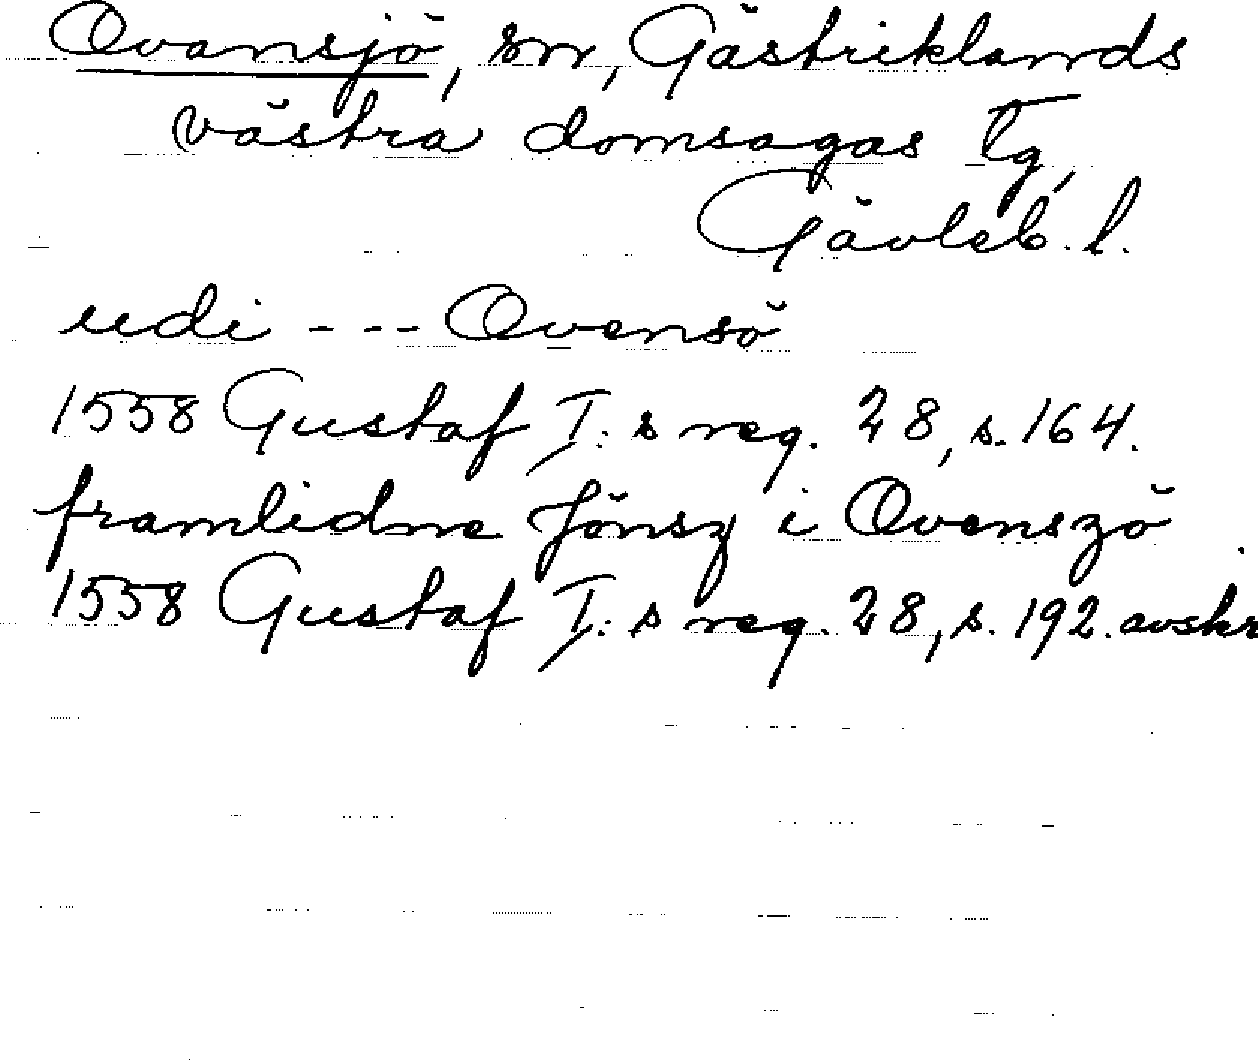 Ovansjö, sn, Gästriklands
västra domsagas tg,
Gävleb. l.
udi --- Ovensö
1558 Gustaf I:s reg. 28, s. 164.
framlidne Jönsz i Ovenszö
1558 Gustaf I:s reg. 28, s. 192. avskr